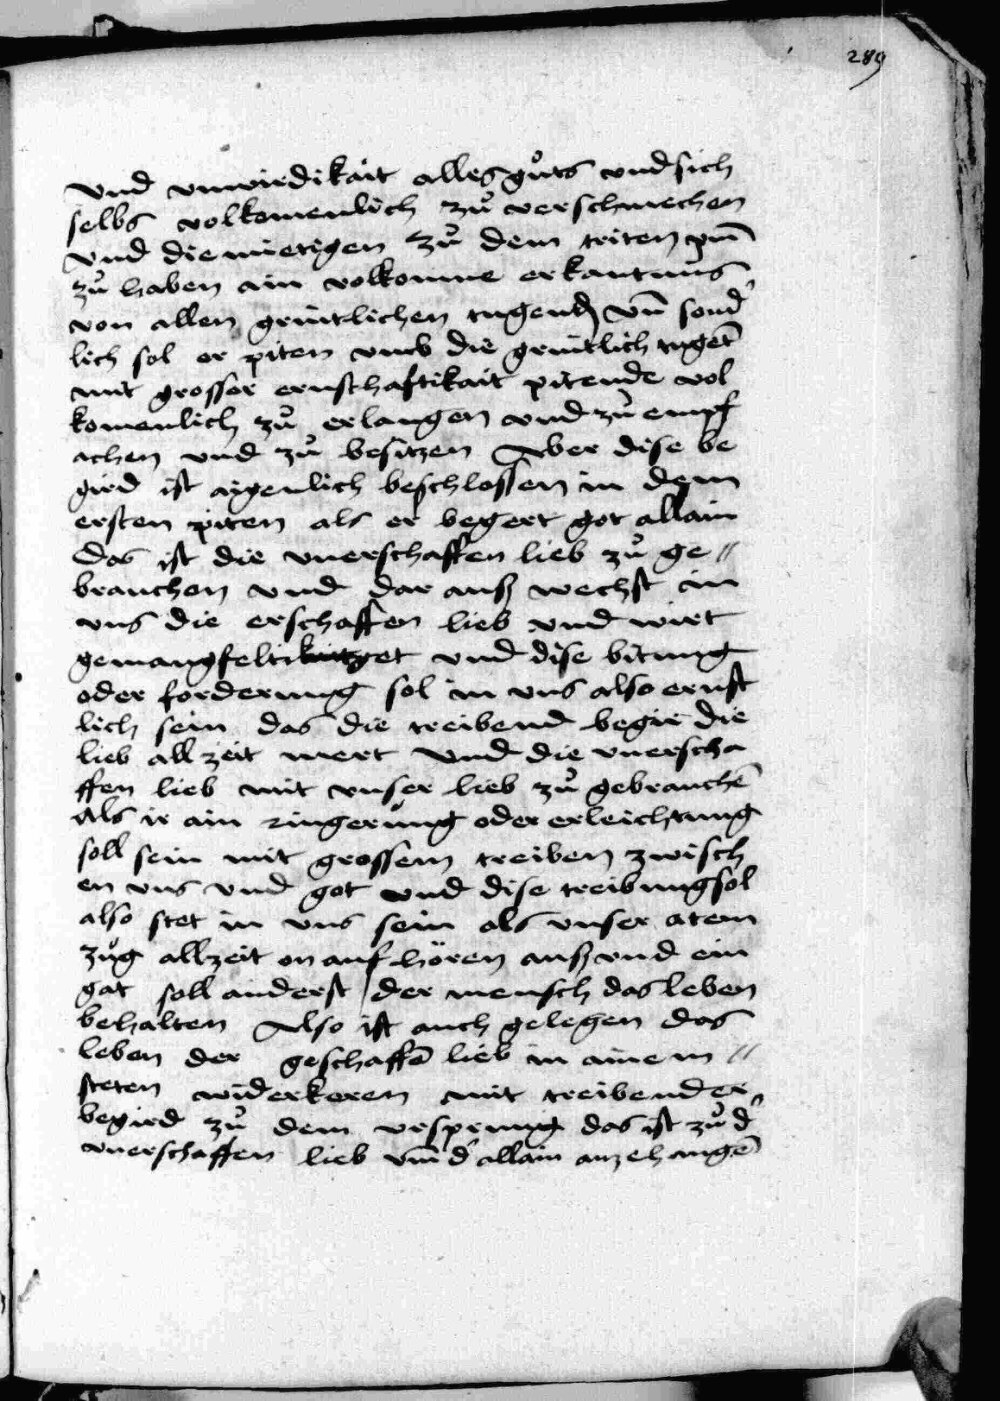 289
Vnd vnwirdikait alles gůts vnd sich
selbs volkomenlich zů verschmechen
vnd diemietigen Zů dem triten vm̄
zů haben ain volkomne erkantnus
von allen grintlichen tugend vn̄ sond'
lich sol er piten vmb die grintlich tuget̄
mit grosser ernsthaftikait pitende vol
komenlich zů erlangen vnd zů empf
achen vnd zů besitzen Aber dise be
gird ist aigenlich beschlossen in dem
ersten piten als er begert got allain
das ist die vnerschaffen lieb zů ge //
brauchen vnd dar auß wechst in
vns die erschaffen lieb vnd wirt
gemangfeltiket vnd dise bitung
oder forderung sol in vns also ernst
lich sein das die treibend begir die
lieb all zeit mert Vnd die vnerscha
ffen lieb mit vnser lieb zů gebrauchē
Als ir ain ringerung oder erleichtung
soll sein mit grossem treiben zwisch
en vns vnd got vnd dise treibung sol
also stet in vns sein als vnser atem
zůg allzeit on auf hören auß vnd ein
gat soll anderst der mensch das leben
behalten Also ist auch gelegen das
leben der geschaffē lieb in ainem //
steten widerkeren mit treibender
begird zů dem vrsprung das ist zů d'
vnerschaffen lieb vm̄ d' allain anzehangē